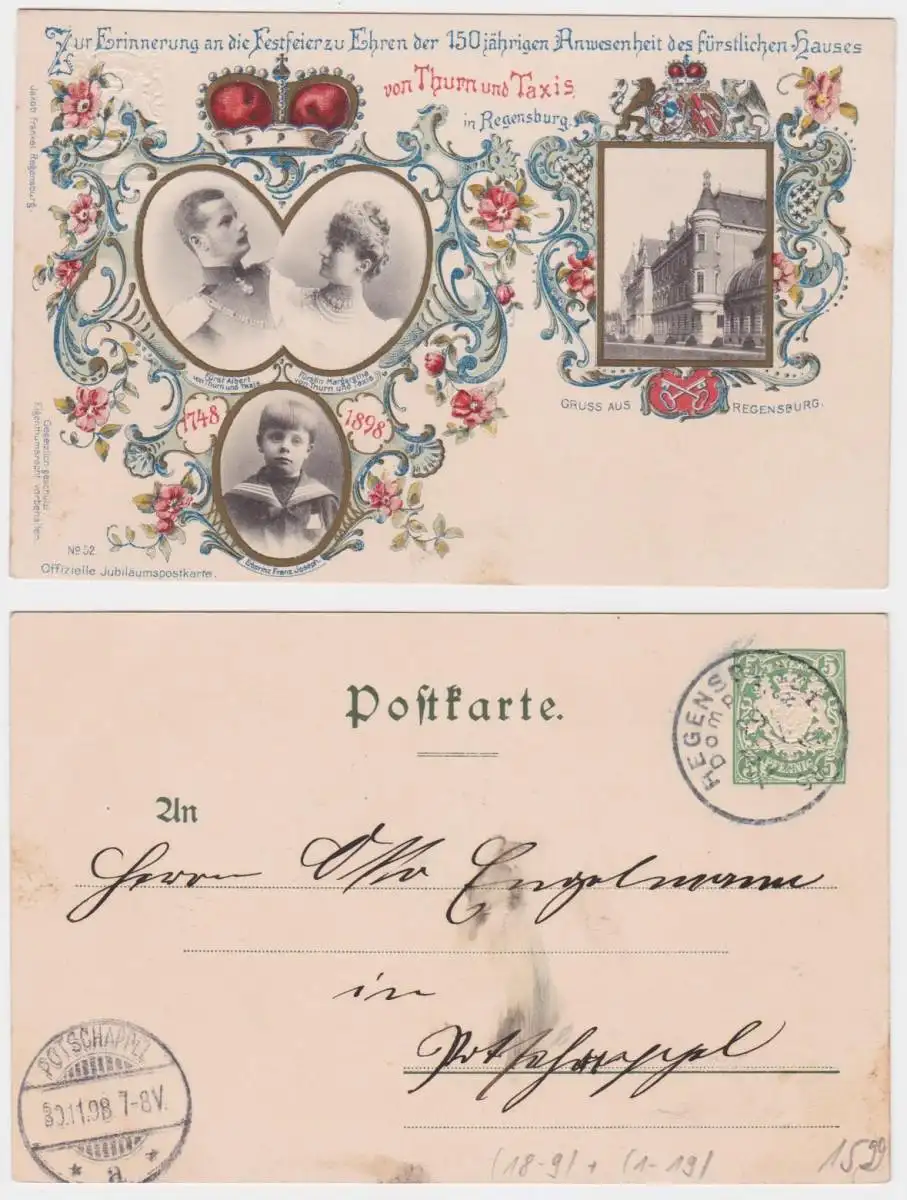 Zur Erinnerung an die Festfeier zu Ehren der 150 jährigen Anwesenheit des fürstlichen Hauses
von Thurn und Taxis
in Regensburg.
Jakob Fränkel Regensburg.
Fürst Albert
von Thurn und Taxis
Fürstin Margarethe
von Thurn und Taxis
1748
1898
GRUSS AUS REGENSBURG.
Gesetzlich geschützt
Eigenthumsrecht vorbehalten.
No 52
Erbprinz Franz Joseph.
Offizielle Jubiläumspostkarte.
Postkarte.
REGENSB
Dom
5 5
5 5
PFENNIG
An
Herrn Otto Engelmann
in
Potschappel
POTSCHAPPEL
30.11.98 7-8V.
* a *
(18-9) + (1-19)